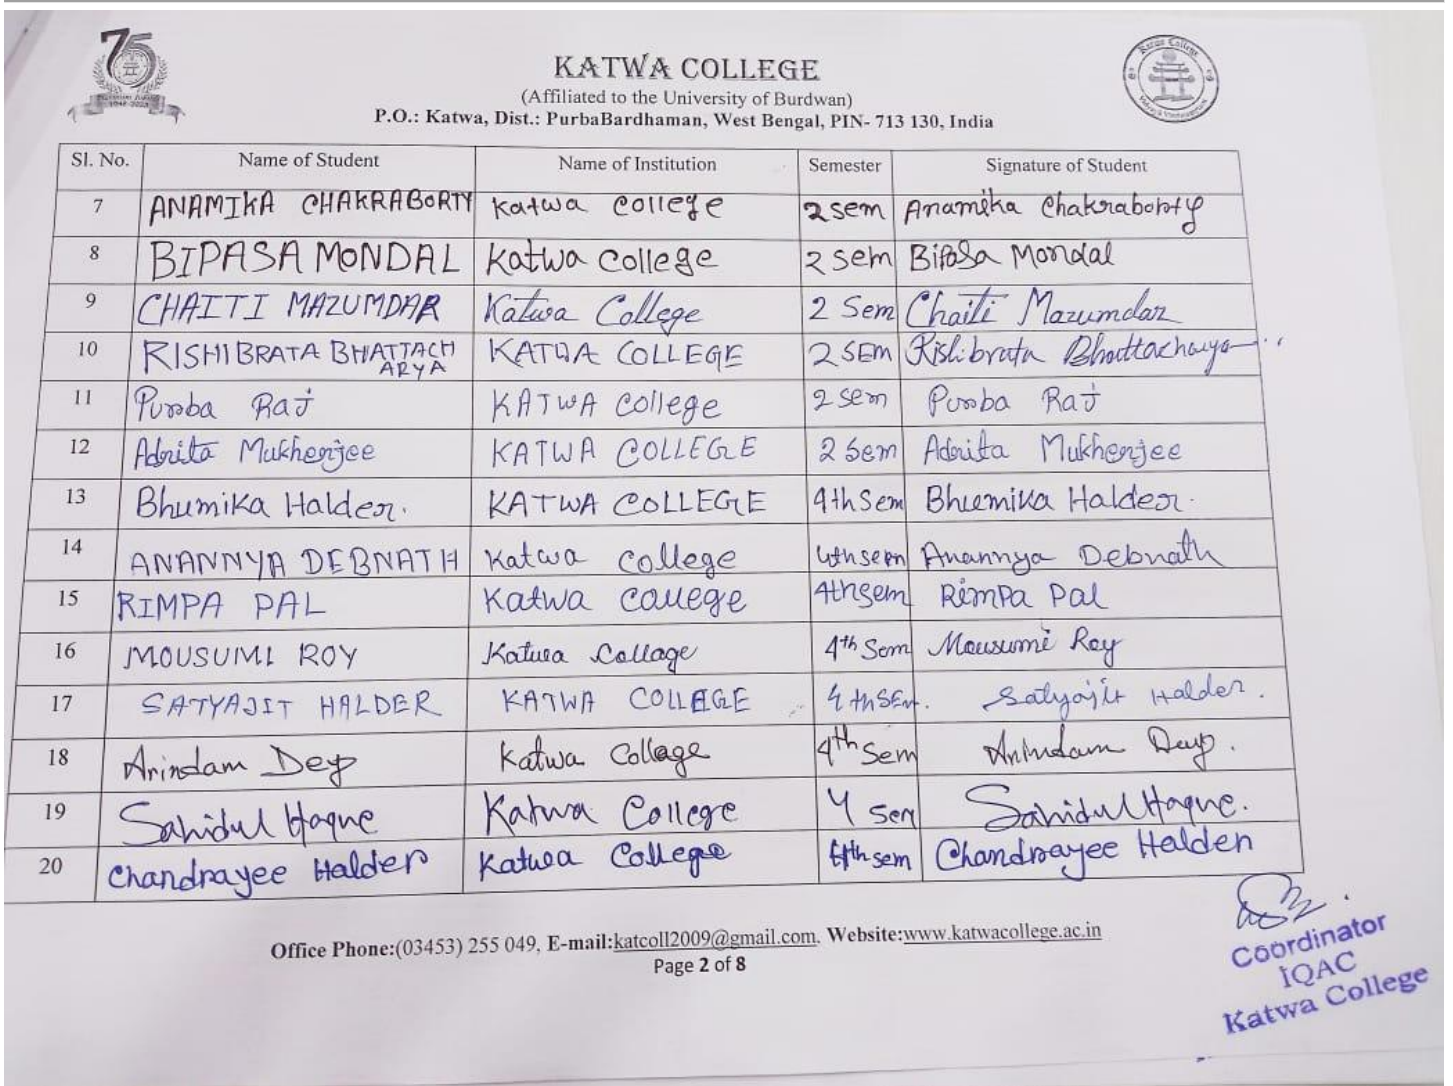 75
1948-2023
KATWA COLLEGE
(Affiliated to the University of Burdwan)
P.O.: Katwa, Dist.: PurbaBardhaman, West Bengal, PIN- 713 130, India
Katwa College
Sl. No. Name of Student Name of Institution Semester Signature of Student
7 ANAMIKA CHAKRABORTY Katwa College 2 sem Anamika Chakraborty
8 BIPASA MONDAL Katwa College 2 sem Bipasa Mondal
9 CHAITI MAZUMDAR Katwa College 2 Sem Chaiti Mazumdar
10 RISHIBRATA BHATTACH ARYA KATWA COLLEGE 2 SEM Rishibrata Bhattacharya
11 Purba Raj KATWA College 2 sem Purba Raj
12 Adrita Mukherjee KATWA COLLEGE 2 Sem Adrita Mukherjee
13 Bhumika Halder. KATWA COLLEGE 4th Sem Bhumika Halder.
14 ANANNYA DEBNATH Katwa College 4th sem Anannya Debnath
15 RIMPA PAL Katwa College 4th sem Rimpa Pal
16 MOUSUMI ROY Katwa Collage 4th Sem Mousumi Roy
17 SATYAJIT HALDER KATWA COLLEGE 4th SEM. Satyajit Halder.
18 Arindam Dey Katwa Collage 4th Sem Arindam Dey.
19 Sahidul Haque Katwa College 4 Sem Sahidul Haque.
20 Chandrayee Halder Katwa College 4th sem Chandrayee Halder
Office Phone:(03453) 255 049, E-mail:katcoll2009@gmail.com, Website:www.katwacollege.ac.in
Page 2 of 8
Coordinator
IQAC
Katwa College